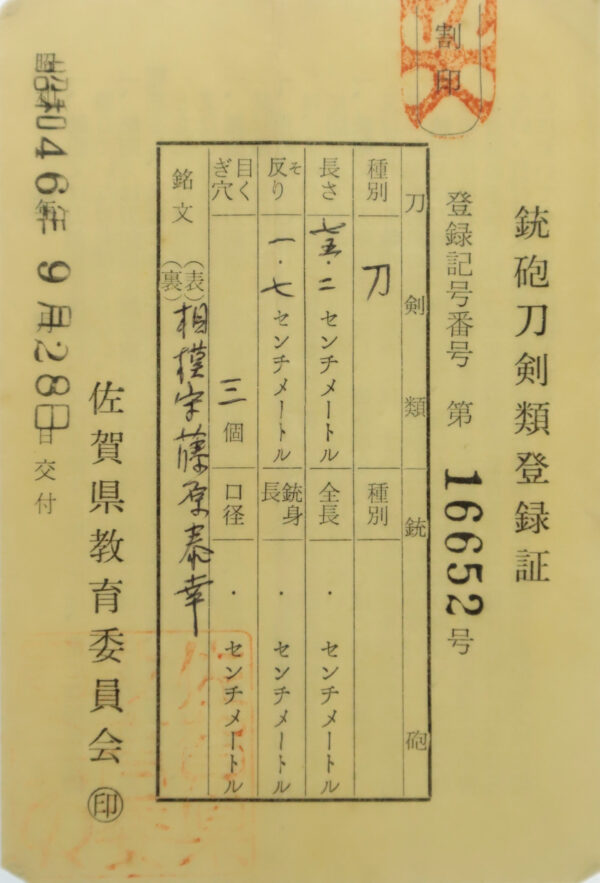 割印
銃砲刀剣類登録証
登録記号番号 第 16652 号
刀剣類 銃砲
種別 刀 種別
長さ 七五・二 センチメートル 全長 ・ センチメートル
反り そ 一・七 センチメートル 銃身長 ・ センチメートル
目くぎ穴 三 個 口径 ・ センチメートル
銘文 (表) 相模守藤原泰幸
(裏)
昭和46年9月28日交付
佐賀県教育委員会 印